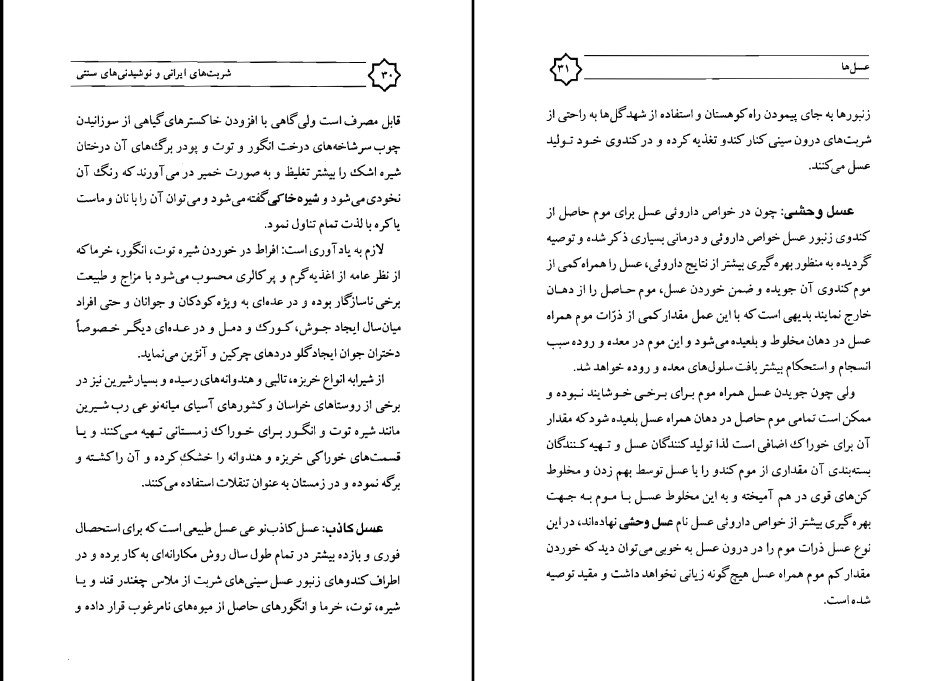 شربت‌های ایرانی و نوشیدنی‌های سنتی
۳۰
قابل مصرف است ولی گاهی با افزودن خاکسترهای گیاهی از سوزانیدن
چوب سرشاخه‌های درخت انگور و توت و پودر برگ‌های آن درختان
شیره اشک را بیشتر تغلیظ و به صورت خمیر در می‌آورند که رنگ آن
نخودی می‌شود و شیره خاکی گفته می‌شود و می‌توان آن را با نان و ماست
یا کره با لذت تمام تناول نمود.
لازم به یاد آوری است: افراط در خوردن شیره توت، انگور، خرما که
از نظر عامه از اغذیه گرم و پر کالری محسوب می‌شود با مزاج و طبیعت
برخی ناسازگار بوده و در عده‌ای به ویژه کودکان و جوانان و حتی افراد
میان‌سال ایجاد جوش، کورک و دمل و در عده‌ای دیگر خصوصاً
دختران جوان ایجاد گلو دردهای چرکین و آنژین می‌نماید.
از شیرابه انواع خربزه، تالبی و هندوانه‌های رسیده و بسیار شیرین نیز در
برخی از روستاهای خراسان و کشورهای آسیای میانه نوعی رب شیرین
مانند شیره توت و انگور برای خوراک زمستانی تهیه می‌کنند و یا
قسمت‌های خوراکی خربزه و هندوانه را خشک کرده و آن را کشته و
برگه نموده و در زمستان به عنوان تنقلات استفاده می‌کنند.
عسل کاذب: عسل کاذب نوعی عسل طبیعی است که برای استحصال
فوری و بازده بیشتر در تمام طول سال روش مکارانه‌ای به کار برده و در
اطراف کندوهای زنبور عسل سینی‌های شربت از ملاس چغندر قند و یا
شیره، توت، خرما و انگورهای حاصل از میوه‌های نامرغوب قرار داده و
عسل‌ها
۳۱
زنبورها به جای پیمودن راه کوهستان و استفاده از شهد گل‌ها به راحتی از
شربت‌های درون سینی کنار کندو تغذیه کرده و در کندوی خود تولید
عسل می‌کنند.
عسل وحشی: چون در خواص داروئی عسل برای موم حاصل از
کندوی زنبور عسل خواص داروئی و درمانی بسیاری ذکر شده و توصیه
گردیده به منظور بهره گیری بیشتر از نتایج داروئی، عسل را همراه کمی از
موم کندوی آن جویده و ضمن خوردن عسل، موم حاصل را از دهان
خارج نمایند بدیهی است که با این عمل مقدار کمی از ذرّات موم همراه
عسل در دهان مخلوط و بلعیده می‌شود و این موم در معده و روده سبب
انسجام و استحکام بیشتر بافت سلول‌های معده و روده خواهد شد.
ولی چون جویدن عسل همراه موم برای برخی خوشایند نبوده و
ممکن است تمامی موم حاصل در دهان همراه عسل بلعیده شود که مقدار
آن برای خوراک اضافی است لذا تولید کنندگان عسل و تهیه کنندگان
بسته‌بندی آن مقداری از موم کندو را با عسل توسط بهم زدن و مخلوط
کن‌های قوی در هم آمیخته و به این مخلوط عسل با موم به جهت
بهره گیری بیشتر از خواص داروئی عسل نام عسل وحشی نهاده‌اند، در این
نوع عسل ذرات موم را در درون عسل به خوبی می‌توان دید که خوردن
مقدار کم موم همراه عسل هیچ گونه زیانی نخواهد داشت و مقید توصیه
شده است.